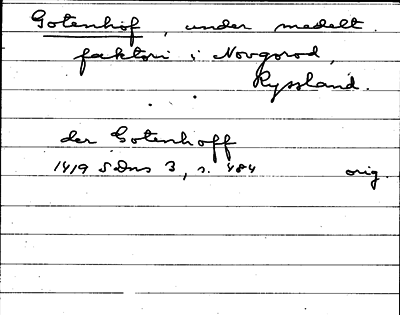 Gotenhof, under medelt.
faktori i Novgorod,
Ryssland.
der Gotenhoff
1419 SDns 3, s. 484 orig.